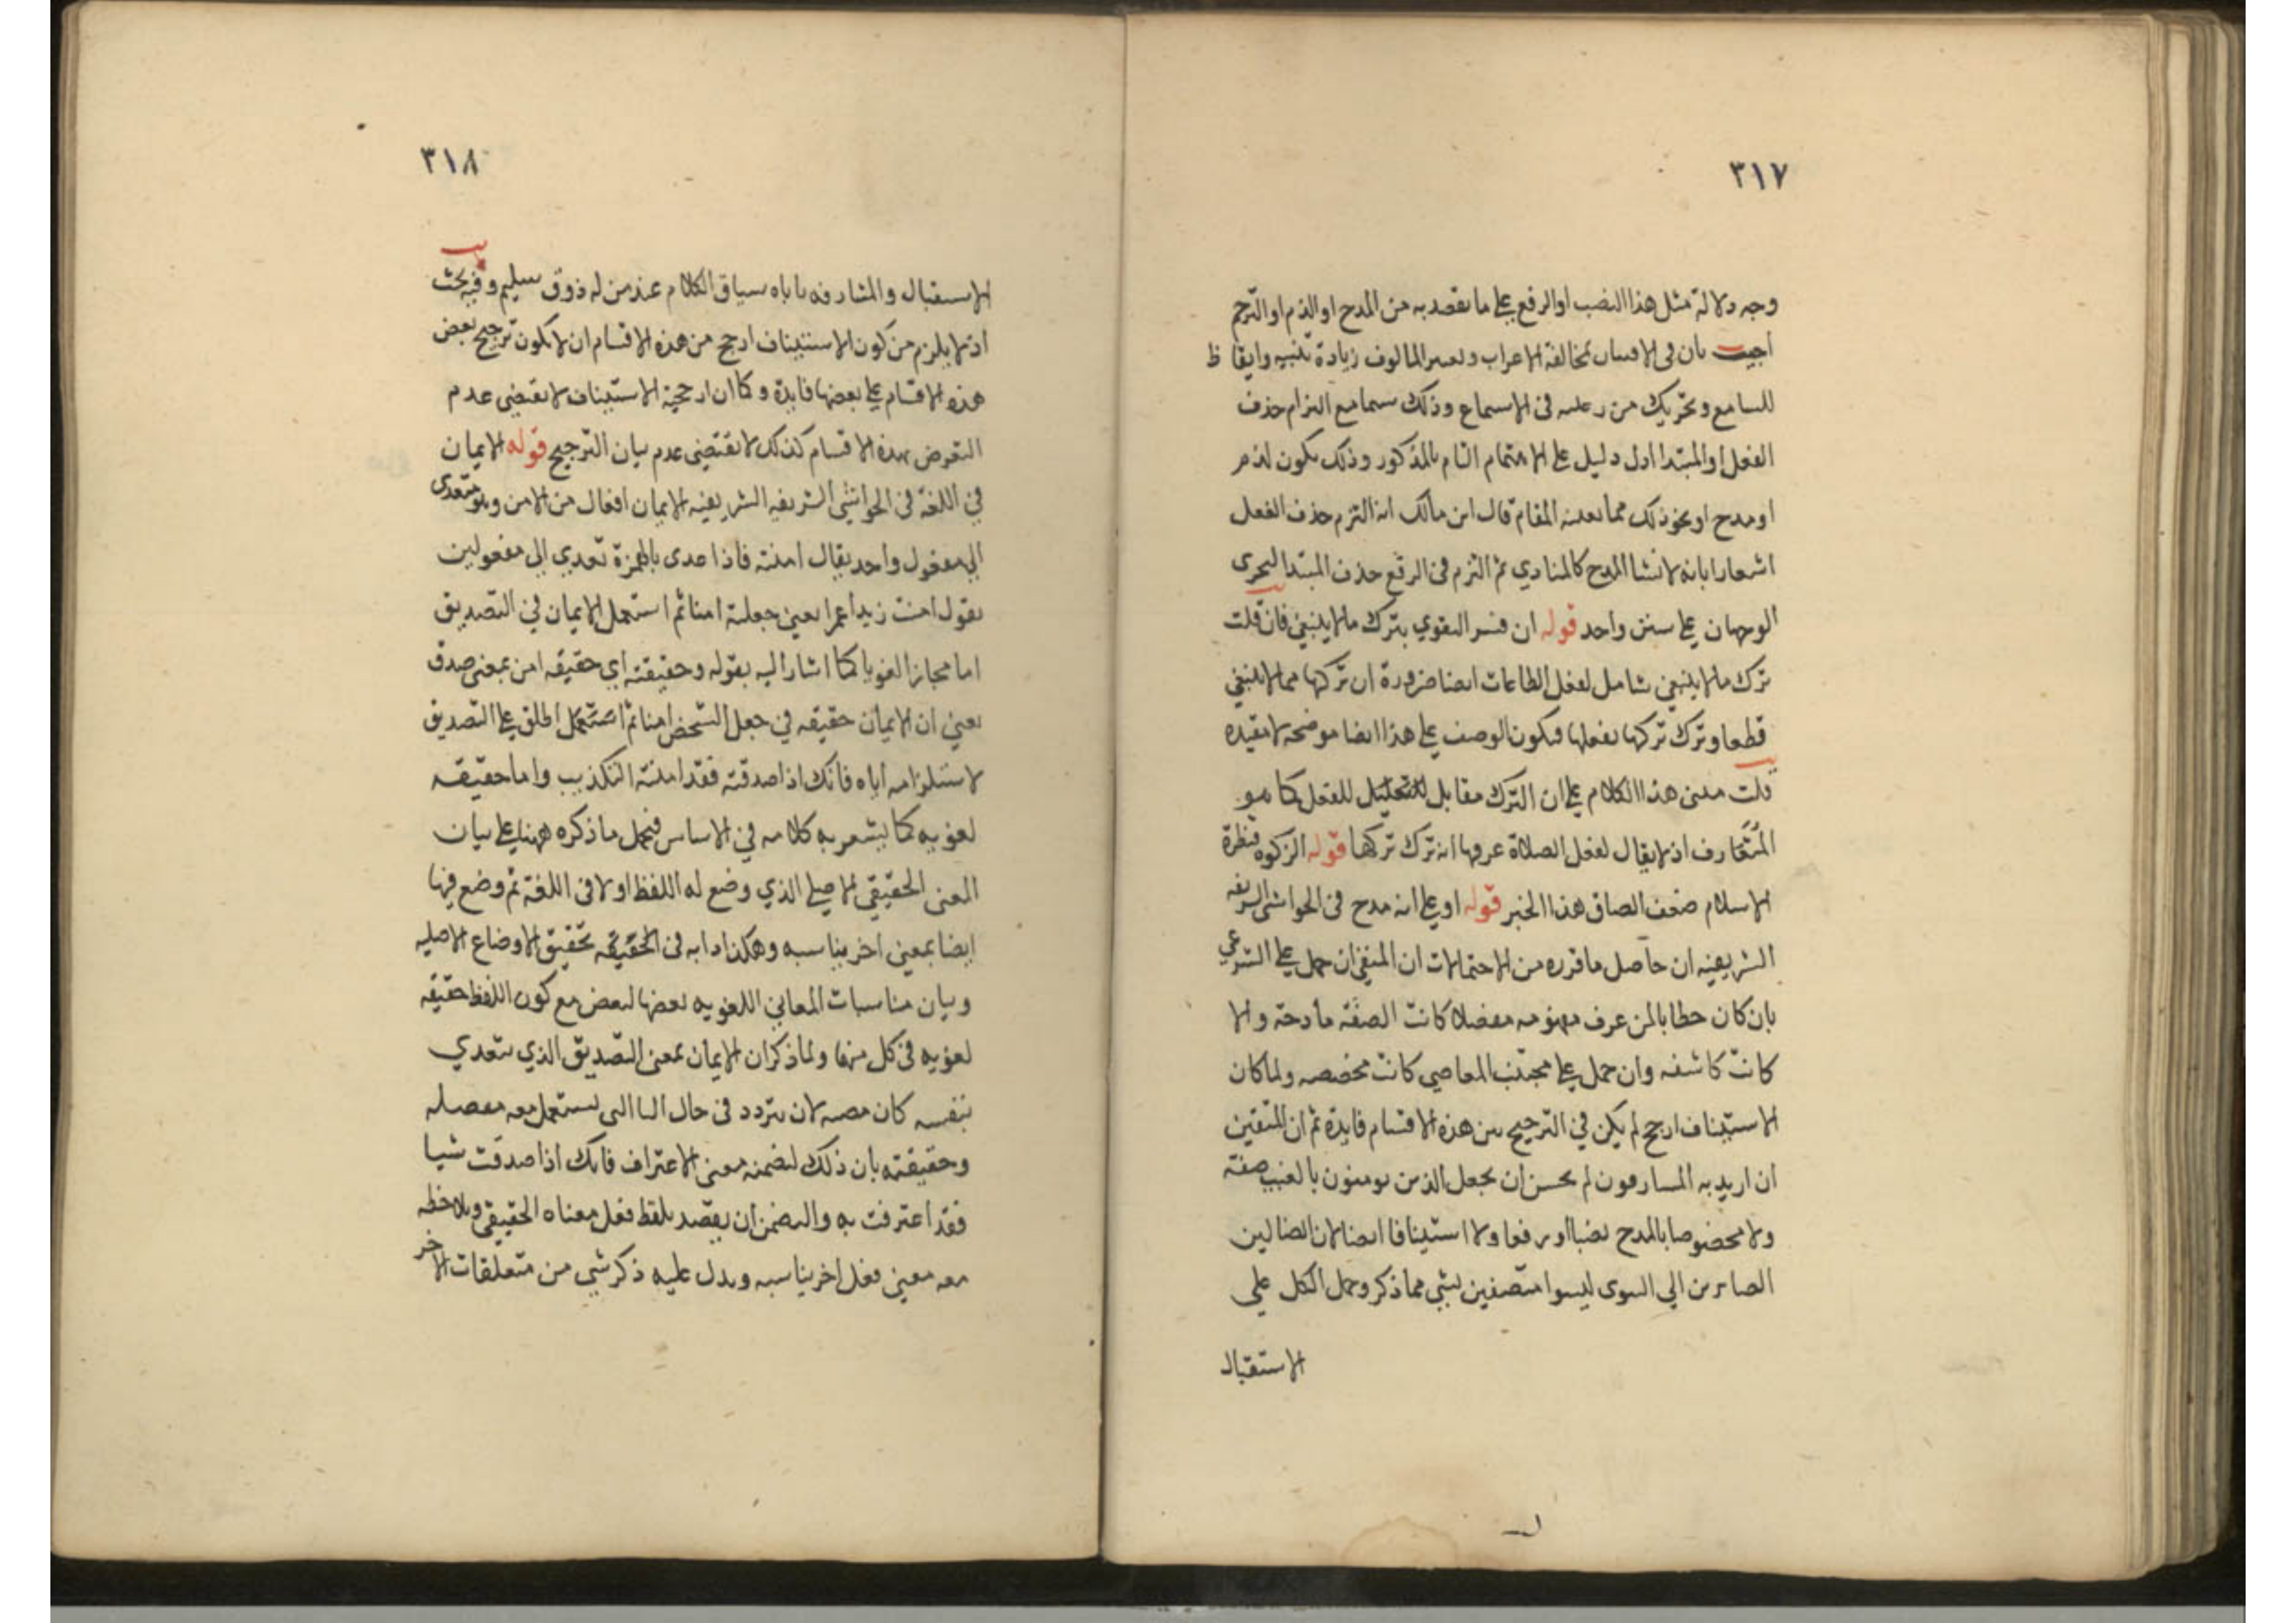 ٣١٧
وجه دلالة مثل هذا النصب او الرفع على ما يقصد به من المدح او الذم او الترحم
أجيب بان في الافتنان لمخالفة الاعراب وتغيير المالوف زيادة تنبيه وايقاظ
للسامع وتحريك من رغبته في الاستماع وذلك سيما مع التزام حذف
الفعل او المبتدا ادل دليل على الاهتمام التام بالمذكور وذلك يكون لذم
او مدح او نحو ذلك مما يعينه المقام قال ابن مالك انه التزم حذف الفعل
اشعارا بانه لانشا المدح كالمنادي ثم التزم في الرفع حذف المبتدا ليجرى
الوجهان على سنن واحد قوله ان فسر التقوي بترك ما لا ينبغي فان قلت
ترك ما لا ينبغي شامل لفعل الطاعات ايضا ضرورة ان تركها مما لا ينبغي
قطعا وترك تركها بفعلها فيكون الوصف على هذا ايضا موضحة لا مقيده
قلت مبنى هذا الكلام على ان الترك مقابل للفعل كما هو
المتعارف اذ لا يقال لفعل الصلاة عرفا انه ترك تركها قوله الزكوة قنطرة
الاسلام ضعف الصاق هذا الخبر قوله او على انه مدح في الحواشي الشريفه
الشريفيه ان حاصل ما قرره من الاحتمالات ان المتقي ان حمل على الشرعي
بان كان خطابا لمن عرف مفهومه مفصلا كانت الصفة مادحة والا
كانت كاشفه وان حمل على مجتنب المعاصي كانت مخصصه ولما كان
الاستيناف ارجح لم يكن في الترجيح بين هذه الاقسام فايدة ثم ان المتقين
ان اريد به المشارفون لم يحسن ان يجعل الذين يومنون بالغيب صفة
ولا مخصوصا بالمدح نصبا او رفعا ولا استينافا ايضا لان الضالين
الصايرين الي التقوى ليسوا متصفين بشي مما ذكر وحمل الكل على
الاستقبال
٣١٨
الاستقبال والمشارفه ياباه سياق الكلام عند من له ذوق سليم وفيه بحث
اذ لا يلزم من كون الاستيناف ارجح من هذه الاقسام ان لا يكون ترجيح بعض
هذه الاقسام على بعضها فايدة وكما ان ارجحية الاستيناف لا يقتضي عدم
التعرض بهذه الاقسام كذلك لا يقتضي عدم بيان الترجيح قوله الايمان
في اللغة في الحواشي الشريفه الشريفيه الايمان افعال من الامن وهو متعدى
الي مفعول واحد يقال امنته فاذا عدى بالهمزة تعدي الي مفعولين
يقول امنت زيدا عمرا بمعنى جعلته امنا ثم استعمل الايمان في التصديق
اما مجازا لغويا كما اشار اليه بقوله وحقيقته اي حقيقه امن بمعنى صدق
يعني ان الايمان حقيقه في جعل الشخص امنا ثم اطلق على التصديق
لاستلزامه اياه فانك اذا صدقته فقد امنته التكذيب واما حقيقه
لغويه كما يشعر به كلامه في الاساس فيحمل ما ذكره ههنا على بيان
المعنى الحقيقي الاصلي الذي وضع له اللفظ اولا في اللغة ثم وضع فيها
ايضا بمعنى اخر يناسبه وهكذا دابه في تحقيق الاوضاع الاصليه
وبيان مناسبات المعاني اللغويه بعضها لبعض مع كون اللفظ حقيقه
لغويه في كل منها ولما ذكر ان الايمان بمعنى التصديق الذي يتعدي
بنفسه كان مظنه لان يتردد في حال البا التي يستعمل معه
وحقيقته بان ذلك لتضمنه معنى الاعتراف فانك اذا صدقت شيا
فقد اعترفت به والتضمن ان يقصد بلفظ فعل معناه الحقيقي ويلاحظ
معه معنى فعل اخر يناسبه ويدل عليه ذكر شي من متعلقات الاخر